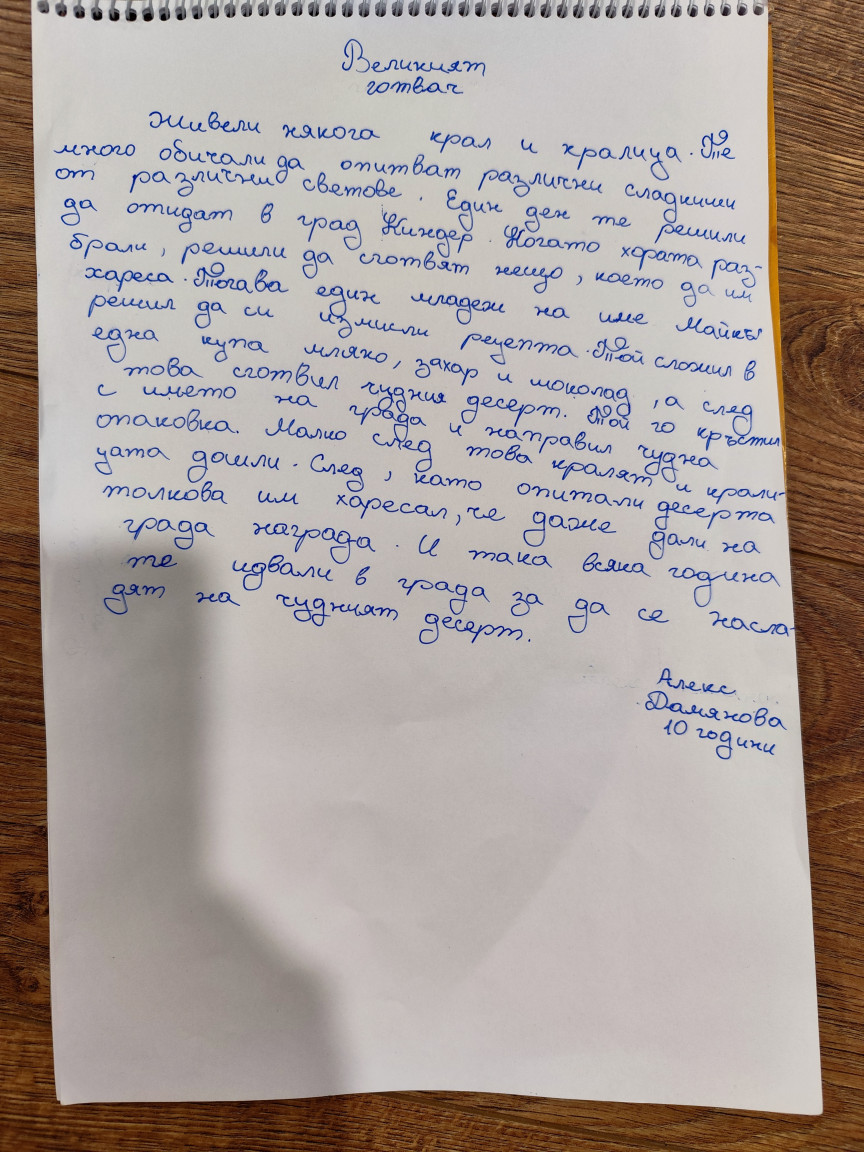 Великият
готвач
Живели някога крал и кралица. Те
много обичали да опитват различни сладкиши
от различни светове. Един ден те решили
да отидат в град Киндер. Когато хората раз-
брали, решили да сготвят нещо, което да им
хареса. Тогава един младеж на име Майкъл
решил да си измисли рецепта. Той сложил в
една купа мляко, захар и шоколад, а след
това сготвил чудния десерт. Той го кръстил
с името на града и направил чудна
опаковка. Малко след това кралят и крали-
цата дошли. След, като опитали десерта
толкова им харесал, че даже дали на
града награда. И така всяка година
те идвали в града за да се насла-
дят на чудният десерт.
Алекс
Дамянова
10 години